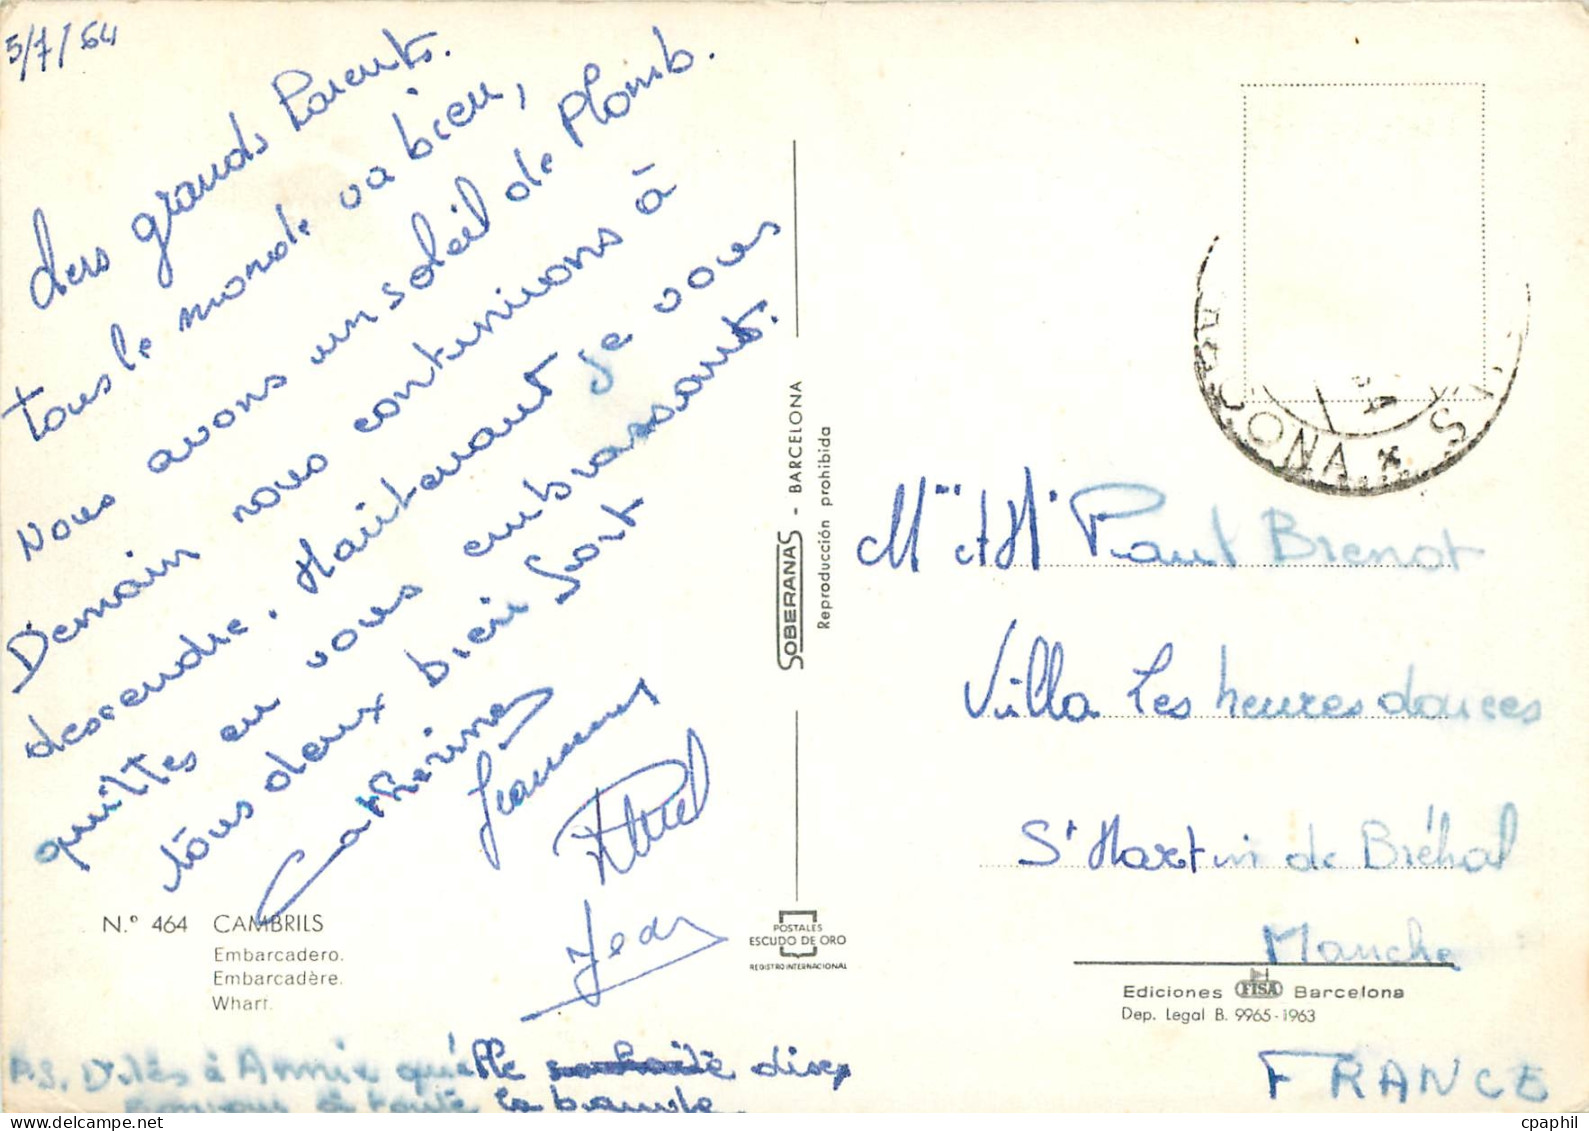 5/7/64
chers grands Parents.
tous le monde va bien,
Nous avons un soleil de Plomb.
Demain nous continuons à
descendre. Maintenant je vous
quittes en vous embrassants.
tous deux bien fort
Catherine
Jeanne
Jean
N.º 464 CAMBRILS
Embarcadero.
Embarcadère.
Wharf.
P.S. Dites à Annie qu'elle souhaite dise
bonjour à toute la bande
SOBERANAS - BARCELONA
Reproducción prohibida
POSTALES
ESCUDO DE ORO
REGISTRO INTERNACIONAL
ONA * S
Mme et Mr Paul Brenot
Villa les heures douces
St Martin de Bréhal
Manche
Ediciones FISA Barcelona
Dep. Legal B. 9965-1963
FRANCE
cpaphil